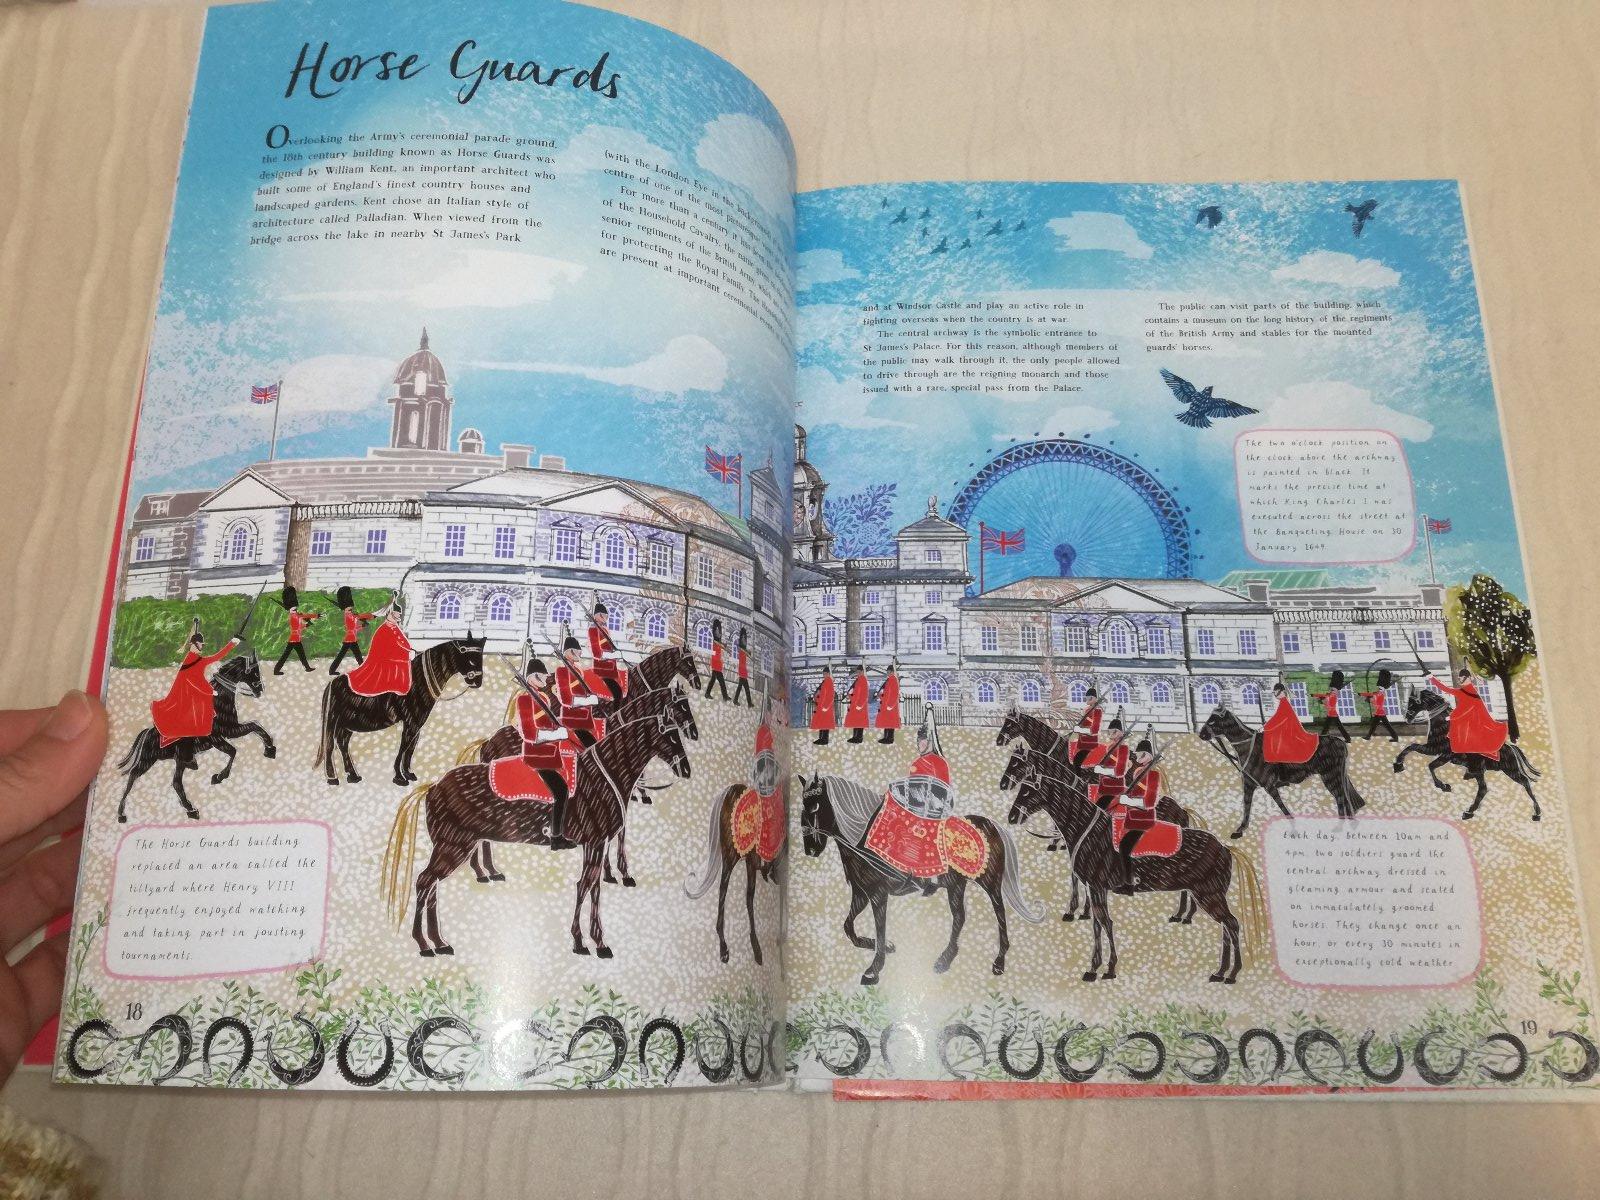 Horse Guards
Overlooking the Army's ceremonial parade ground,
the 18th century building known as Horse Guards was
designed by William Kent, an important architect who
built some of England's finest country houses and
landscaped gardens. Kent chose an Italian style of
architecture called Palladian. When viewed from the
bridge across the lake in nearby St James's Park
(with the London Eye in the background)
centre of one of the most picturesque
For more than a century it has been the
of the Household Cavalry, the name given to the
senior regiments of the British Army, which are
for protecting the Royal Family. The
are present at important ceremonial events
and at Windsor Castle and play an active role in
fighting overseas when the country is at war.
The central archway is the symbolic entrance to
St James's Palace. For this reason, although members of
the public may walk through it, the only people allowed
to drive through are the reigning monarch and those
issued with a rare, special pass from the Palace.
The public can visit parts of the building, which
contains a museum on the long history of the regiments
of the British Army and stables for the mounted
guards' horses.
The two o'clock position on
the clock above the archway
is painted in black. It
marks the precise time at
which King Charles I was
executed across the street at
the Banqueting House on 30
January 1649.
The Horse Guards building
replaced an area called the
tiltyard where Henry VIII
frequently enjoyed watching
and taking part in jousting
tournaments.
Each day, between 10am and
4pm, two soldiers guard the
central archway dressed in
gleaming armour and seated
on immaculately groomed
horses. They change once an
hour, or every 30 minutes in
exceptionally cold weather.
18
19